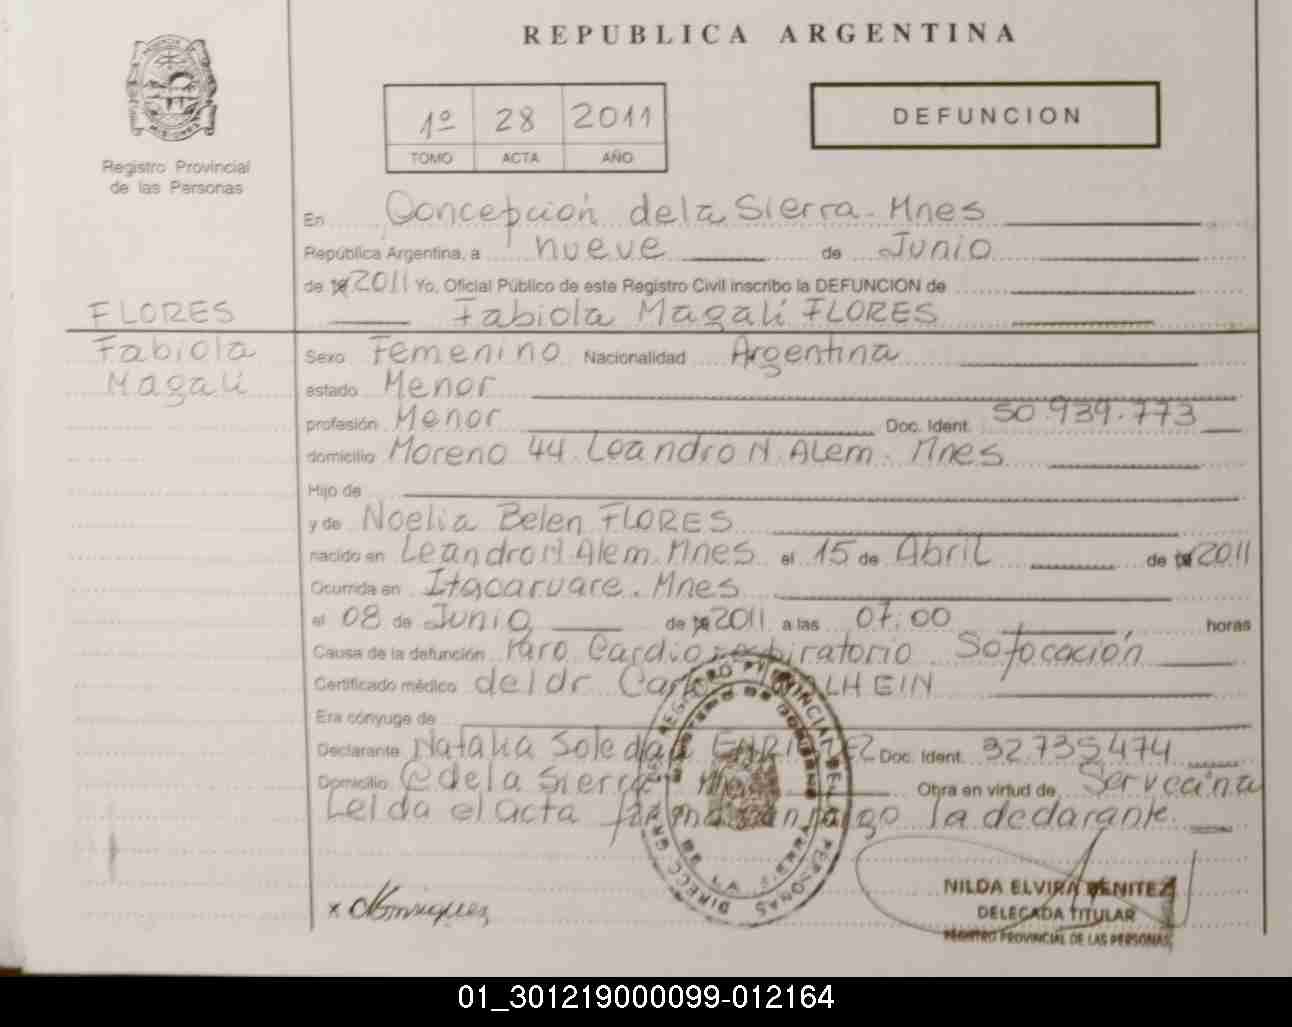 REPUBLICA ARGENTINA
1º 28 2011
TOMO ACTA AÑO
DEFUNCION
Registro Provincial
de las Personas
En Concepción dela Sierra. Mnes
República Argentina, a nueve de Junio
de 2011 Yo, Oficial Público de este Registro Civil inscribo la DEFUNCION de
FLORES
Fabiola Magalí FLORES
Fabiola
Magalí
Sexo Femenino Nacionalidad Argentina
estado Menor
profesión Menor Doc. Ident. 50.939.773
domicilio Moreno 44. Leandro N. ALem. Mnes
Hijo de
y de Noelia Belen FLORES
nacido en Leandro N Alem. Mnes el 15 de Abril de 2011
Ocurrida en Itacaruare. Mnes
el 08 de Junio de 2011 a las 07:00 horas
Causa de la defunción Paro Cardiorespiratorio Sofocación
Certificado médico del dr
Era cónyuge de
Declarante Natalia Soledad Doc. Ident. 32.735.474
Domicilio C de la Sierra Obra en virtud de
Leida el acta la declarante.
NILDA ELVIRA BENITEZ
DELEGADA TITULAR
REGISTRO PROVINCIAL DE LAS PERSONAS
01_301219000099-012164